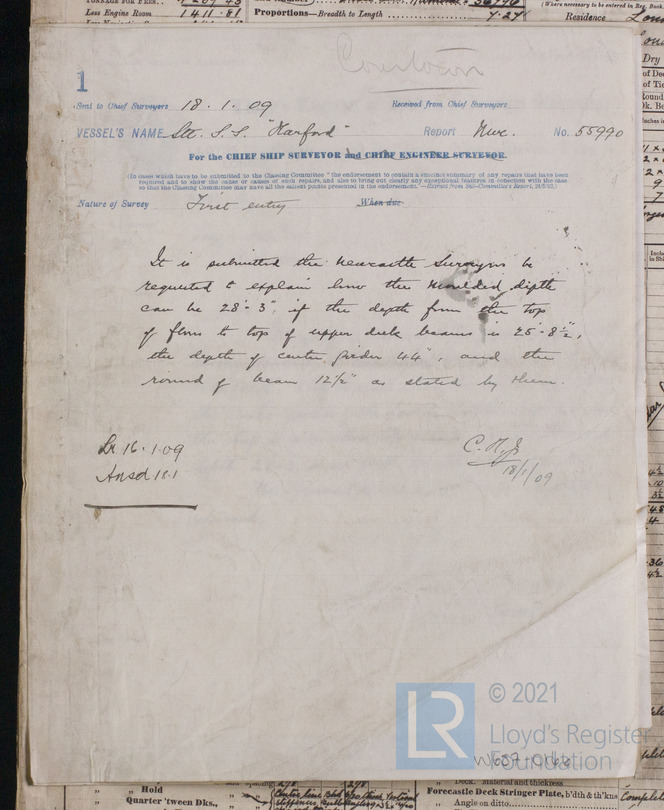 Less Engine Room 1411.81
Proportions—Breadth to Length 7.27
(Where necessary to be entered in Reg. Book.)
Residence
Courtown
1
Sent to Chief Surveyors 18.1.09 Received from Chief Surveyors
VESSEL'S NAME Stl. S.S. "Harford" Report Nwc. No. 55990
For the CHIEF SHIP SURVEYOR and CHIEF ENGINEER SURVEYOR.
(In cases which have to be submitted to the Classing Committee "the endorsement to contain a succinct summary of any repairs that have been
required and to show the cause or causes of such repairs, and also to bring out clearly any exceptional features in connection with the case
so that the Classing Committee may have all the salient points presented in the endorsement."
Nature of Survey First entry When due
It is submitted the Newcastle Surveyors be
requested to explain how the moulded depth
can be 28'-3", if the depth from the top
of floors to top of upper deck beams is 25'-8½",
the depth of centre girder 44", and the
round of beam 12½" as stated by them.
Lr 16.1.09
Ansd 18.1
C.H.J.
18/1/09
© 2021
Lloyd's Register
Foundation
W637-0166
Hold
Quarter 'tween Dks.,
Deck. Material and thickness
Forecastle Deck Stringer Plate, b'dth & th'kns
Angle on ditto